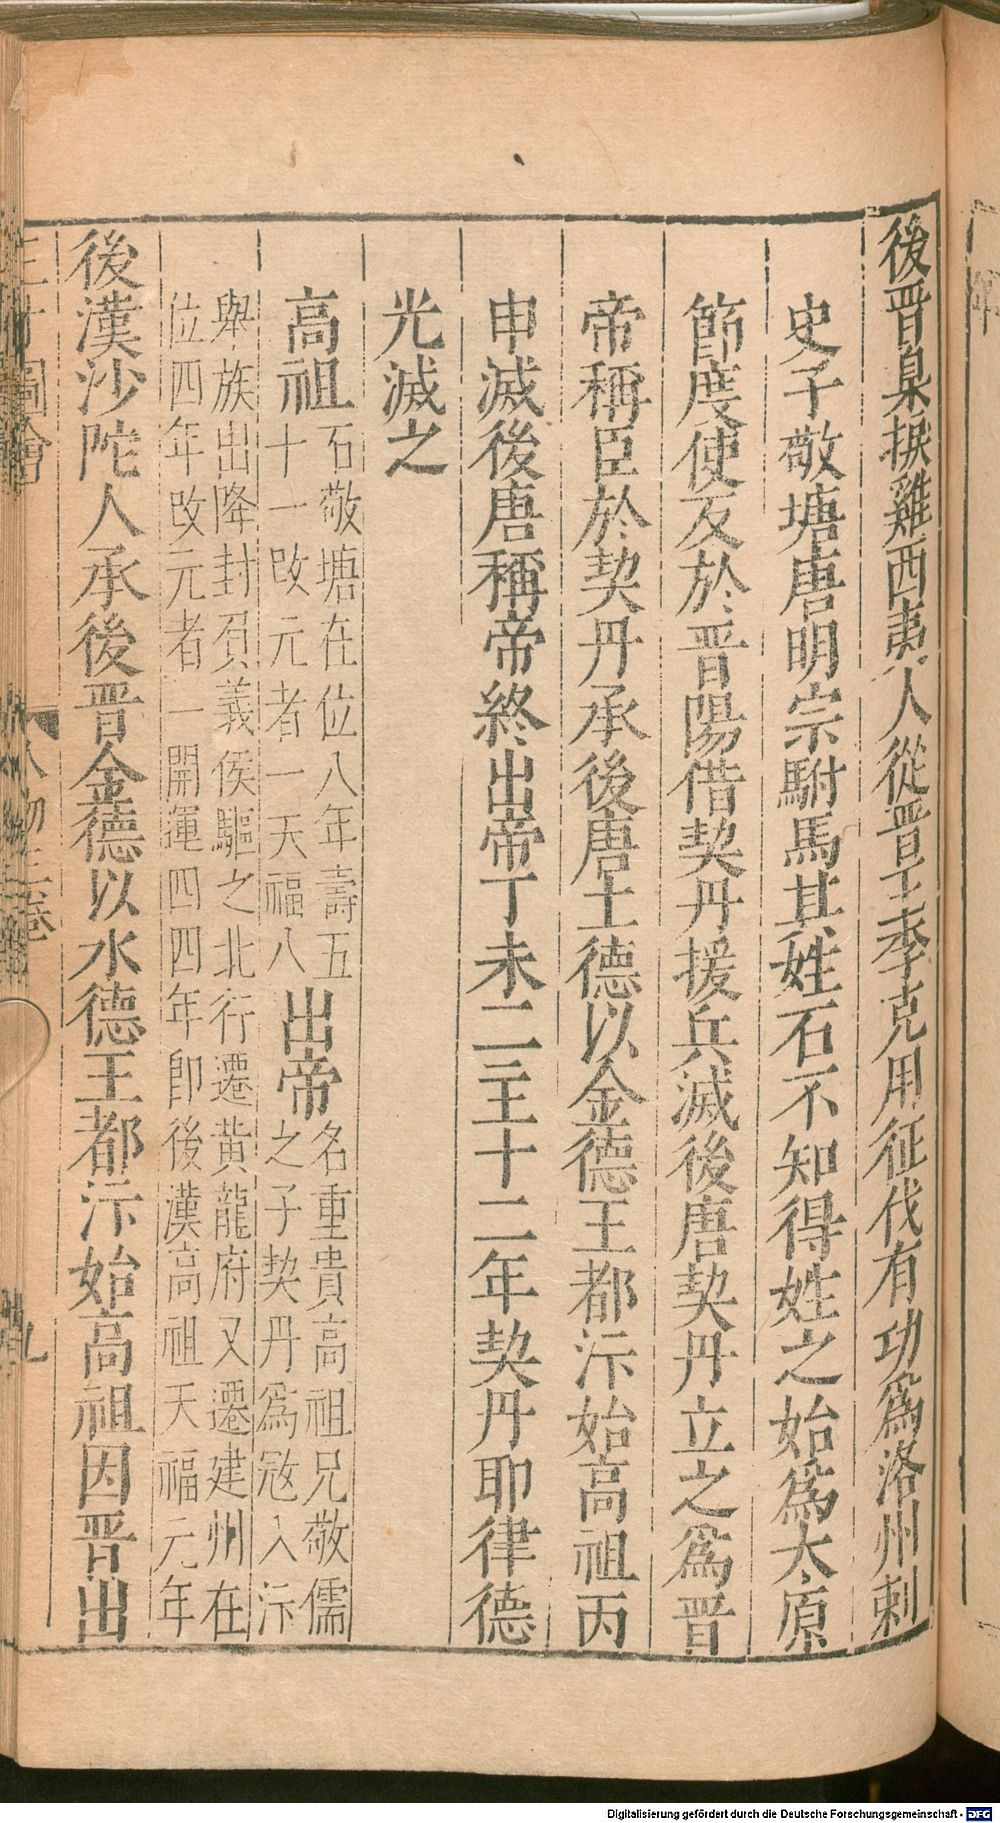 後晋臬捩雞西夷人從晋王李克用征伐有功爲洛州刺
史子敬塘唐明宗駙馬其姓石不知得姓之始爲太原
節度使反於晋陽借契丹援兵滅後唐契丹立之爲晋
帝稱臣於契丹承後唐土德以金德王都汴始高祖丙
申滅後唐稱帝終出帝丁未二主十二年契丹耶律德
光滅之
高祖石敬塘在位八年壽五
十一改元者一天福八
出帝名重貴高祖兄敬儒
之子契丹爲宼入汴
舉族出降封負義侯驅之北行遷黄龍府又遷建州在
位四年改元者一開運四四年卽後漢高祖天福元年
後漢沙陀人承後晋金德以水德王都汴始高祖因晋出
三才圖會 人物三卷 九
Digitalisierung gefördert durch die Deutsche Forschungsgemeinschaft - DFG